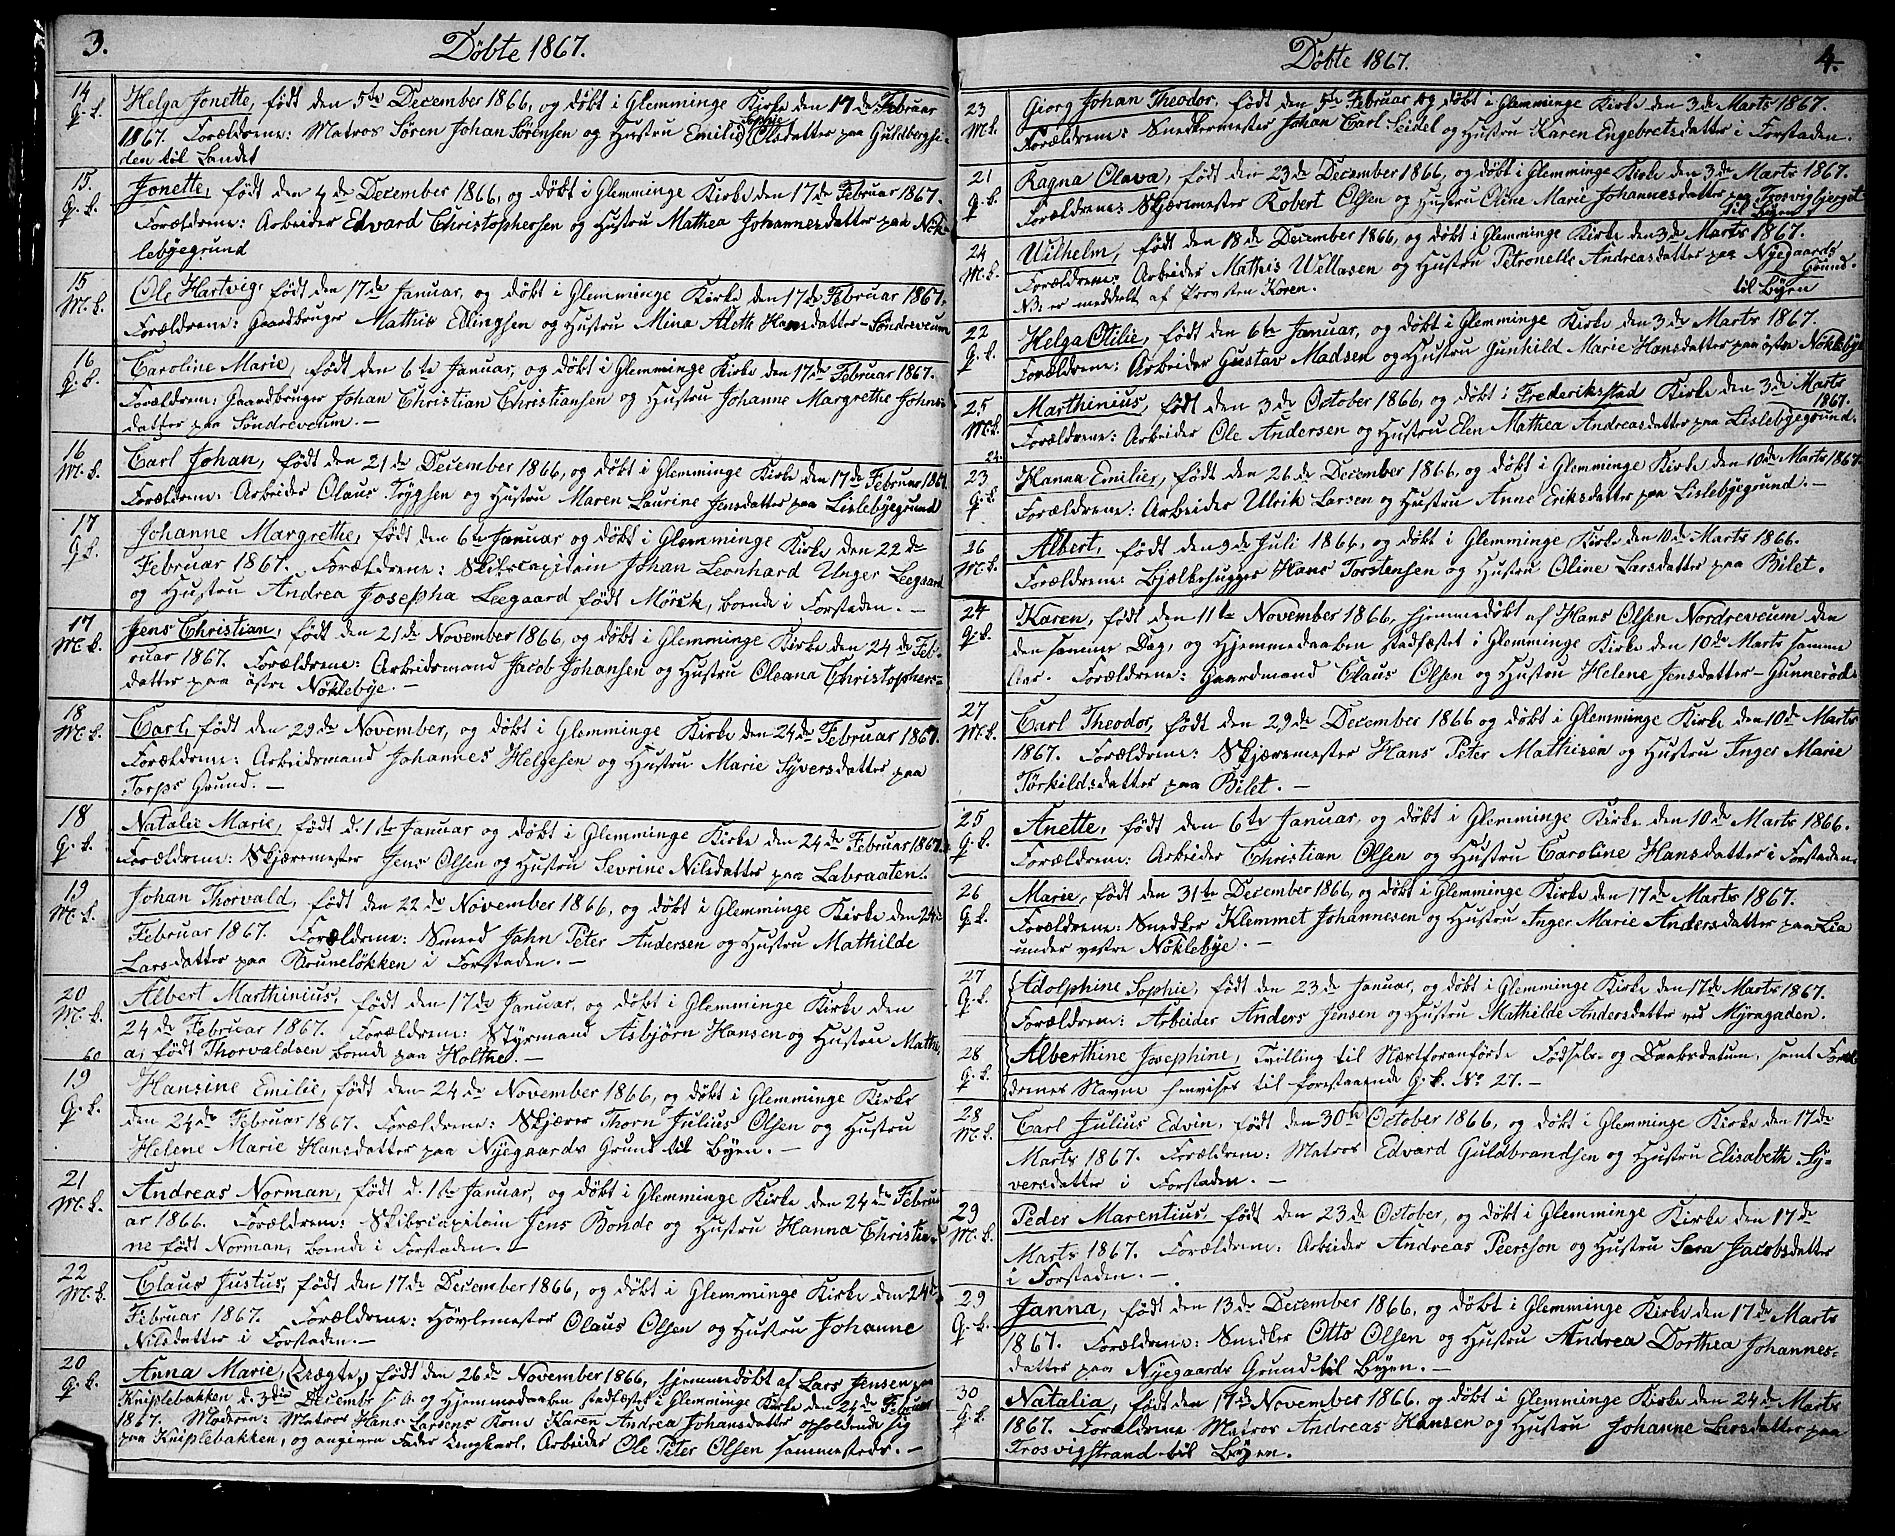 3.
Døbte 1867.
14
q. k.
Helga Jonette, født den 5te December 1866, og døbt i Glemminge Kirke den 17de Februar
1867. Forældrene: Matros Søren Johan Sörensen og Hustru Emilie Sophie Olsdatter paa Guldberghsi-
den til Landet
15.
q. k.
Jonette, født den 4de December 1866, og døbt i Glemminge Kirke den 17de Februar 1867.
Forældrene: Arbeider Edvard Christophersen og Hustru Mathea Johannesdatter paa Nök-
lebyegrund
15
M. k.
Ole Hartvig, født den 17de Januar, og døbt i Glemminge Kirke den 17de Februar 1867.
Forældrene: Gaardbruger Mathis Ellingsen og Hustru Mina Alette Hansdatter - Söndreveum
16
q. k.
Caroline Marie, født den 6te Januar, og døbt i Glemminge Kirke den 17de Februar 1867.
Forældrene: Gaardbruger Johan Christian Christiansen og Hustru Johanne Margrethe Johns-
datter paa Söndreveum. —
16
M. k.
Carl Johan, født den 21de December 1866, og døbt i Glemminge Kirke den 17de Februar 1867.
Forældrene: Arbeider Olaus Trygsen og Hustru Maren Laurine Jensdatter paa Lislebyegrund
17
q. k.
Johanne Margrethe, født den 6te Januar og døbt i Glemminge Kirke den 22de
Februar 1867. Forældrene: Skibscapitain Johan Leonhard Unger Leegaard
og Hustru Andrea Josepha Leegaard født Mörck, boende i Forstaden. —
17
M. k.
Jens Christian, født den 21de November 1866, og døbt i Glemminge Kirke den 24de Feb-
ruar 1867. Forældrene: Arbeidsmand Jacob Johansen og Hustru Oleana Christophers-
datter paa östre Nöklebye. —
18
M. k.
Carl, født den 29de November, og døbt i Glemminge Kirke den 24de Februar 1867.
Forældrene: Arbeidsmand Johannes Helgesen og Hustru Marie Syversdatter paa
Torps Grund. —
18
q. k.
Natalie Marie, født d. 1ste Januar og døbt i Glemminge Kirke den 24de Februar 1867.
Forældrene: Skjæremester Jens Olsen og Hustru Sevrine Nilsdatter paa Labraaten.
19
M. k.
Johan Thorvald, født den 22de November 1866, og døbt i Glemminge Kirke den 24de
Februar 1867. Forældrene: Smed John Peter Andersen og Hustru Mathilde
Larsdatter paa Bruneløkken i Forstaden. —
20
M. k.
Albert Marthinius, født den 17de Januar, og døbt i Glemminge Kirke den
24de Februar 1867. Forældrene: Styrmand Asbjørn Hansen og Hustru Mathe
a, født Thorvaldsen boende paa Holthe. —
60
19
q. k.
Hansine Emilie, født den 24de November 1866, og døbt i Glemminge Kirke
den 24de Februar 1867. Forældrene: Skjærer Thorn Julius Olsen og Hustru
Helene Marie Hansdatter paa Nyegaards Grund til Byen. —
21
M. k.
Andreas Norman, født d. 1ste Januar, og døbt i Glemminge Kirke den 24de Febru
ar 1866. Forældrene: Skibscapitain Jens Bonde og Hustru Hanna Christia-
ne født Norman, boende i Forstaden. —
22
M. k.
Claus Justus, født den 17de December 1866, og døbt i Glemminge Kirke den 24de
Februar 1867. Forældrene: Høvlemester Olaus Olsen og Hustru Johanne
Nilsdatter i Forstaden. —
20
q. k.
Anna Marie, (uægte,) født den 26de November 1866, hjemmedøbt af Lars Jensen paa
Kniplebakken d. 3die Decembr s. A. og Hjemmedaaben stadfæstet i Glemminge Kirke den 24de Februar
1867. Moderen: Matros Hans Larsens Kone Karen Andrea Johansdatter opholdende sig
paa Kniplebakken, og angiven Fader Ungkarl, Arbeider Ole Peter Olsen sammesteds. —
Døbte 1867.
4.
23
M. k.
Giorg Johan Theodor, født den 5te Februar og døbt i Glemminge Kirke den 3de Marts 1867.
Forældrene: Snedkermester Johan Carl Seidel og Hustru Karen Engebretsdatter i Forstaden.
21
q. k.
Ragna Olava, født den 23de December 1866, og døbt i Glemminge Kirke den 3de Marts 1867.
Forældrene: Skjæremester Robert Olsen og Hustru Oline Marie Johannesdatter paa Trosvigbjerget
til Byen
24
M. k.
Wilhelm, født den 18de December 1866, og døbt i Glemminge Kirke den 3de Marts 1867.
Forældrene: Arbeider Mathis Willasen og Hustru Petronelle Andreasdatter paa Nyegaards
Grund
N3: er meddelt af Provsten Koren. til Byen
22
q. k.
Helga Otilie, født den 6te Januar, og døbt i Glemminge Kirke den 3de Marts 1867.
Forældrene: Arbeider Gustav Madsen og Hustru Gunhild Marie Hansdatter paa östre Nöklebye
25
M. k.
Marthinius, født den 3de October 1866, og døbt i Frederiksstad Kirke den 3de Marts
1867.
Forældrene: Arbeider Ole Andersen og Hustru Elen Mathea Andreasdatter paa Lislebyegrund.
24.
23
q. k.
Hanna Emilie, født den 26de December 1866, og døbt i Glemminge Kirke den 10de Marts 1867
Forældrene: Arbeider Ulrik Larsen og Hustru Anne Eriksdatter paa Lislebyegrund. —
26
M. k.
Albert, født den 9de Juli 1866, og døbt i Glemminge Kirke den 10de Marts 1866.
Forældrene: Bjælkehugger Hans Torstensen og Hustru Oline Larsdatter paa Bilet.
24
q. k.
Karen, født den 11te November 1866, hjemmedøbt af Hans Olsen Nordreveum den
den samme Dag, og Hjemmedaaben stadfæstet i Glemminge Kirke den 10de Marts samme
Aar. Forældrene: Gaardmand Claus Olsen og Hustru Helene Jensdatter - Gunneröd.
27
M. k.
Carl Theodor, født den 29de December 1866 og døbt i Glemminge Kirke den 10de Marts
1867. Forældrene: Skjæremester Hans Peter Mathisen og Hustru Inger Marie
Törkildsdatter paa Bilet. —
25
q. k.
Anette, født den 6te Januar, og døbt i Glemminge Kirke den 10de Marts 1866.
Forældrene: Arbeider Christian Olsen og Hustru Caroline Hansdatter i Forstaden.
26
q. k.
Marie, født den 31te December 1866, og døbt i Glemminge Kirke den 17de Marts 1867.
Forældrene: Snedker Klemmet Johannesen og Hustru Inger Marie Andersdatter paa Lia
under vestre Nöklebye. —
27
q. k.
Adolphine Sophie, født den 23de Januar, og døbt i Glemminge Kirke den 17de Marts 1867.
Forældrene: Arbeider Anders Jensen og Hustru Mathilde Andersdatter ved Myragaden.
28
q. k.
Alberthine Josephine, Tvilling til Næstforanførte Fødsels- og Daabsdatum, samt Foræl
drenes Navne henvises til forestaaende q. k. No 27. —
28
M. k.
Carl Julius Edvin, født den 30te October 1866, og døbt i Glemminge Kirke den 17de
Marts 1867. Forældrene: Matros Edvard Guldbrandsen og Hustru Elisabeth Sy-
versdatter i Forstaden. —
29
M. k.
Peder Marentius, født den 23de October, og døbt i Glemminge Kirke den 17de
Marts 1867. Forældrene: Arbeider Andreas Peersson og Hustru Sara Jacobsdatter
i Forstaden. —
29
q. k.
Janna, født den 13de December 1866, og døbt i Glemminge Kirke den 17de Marts
1867. Forældrene: Snedker Otto Olsen og Hustru Andrea Dorthea Johannes-
datter paa Nyegaards Grund til Byen. —
30
q. k.
Natalia, født den 17de November 1866, og døbt i Glemminge Kirke den 24de Marts
1867. Forældrene Matros Andreas Hansen og Hustru Johanne Larsdatter paa
Trosvigstrand til Byen.